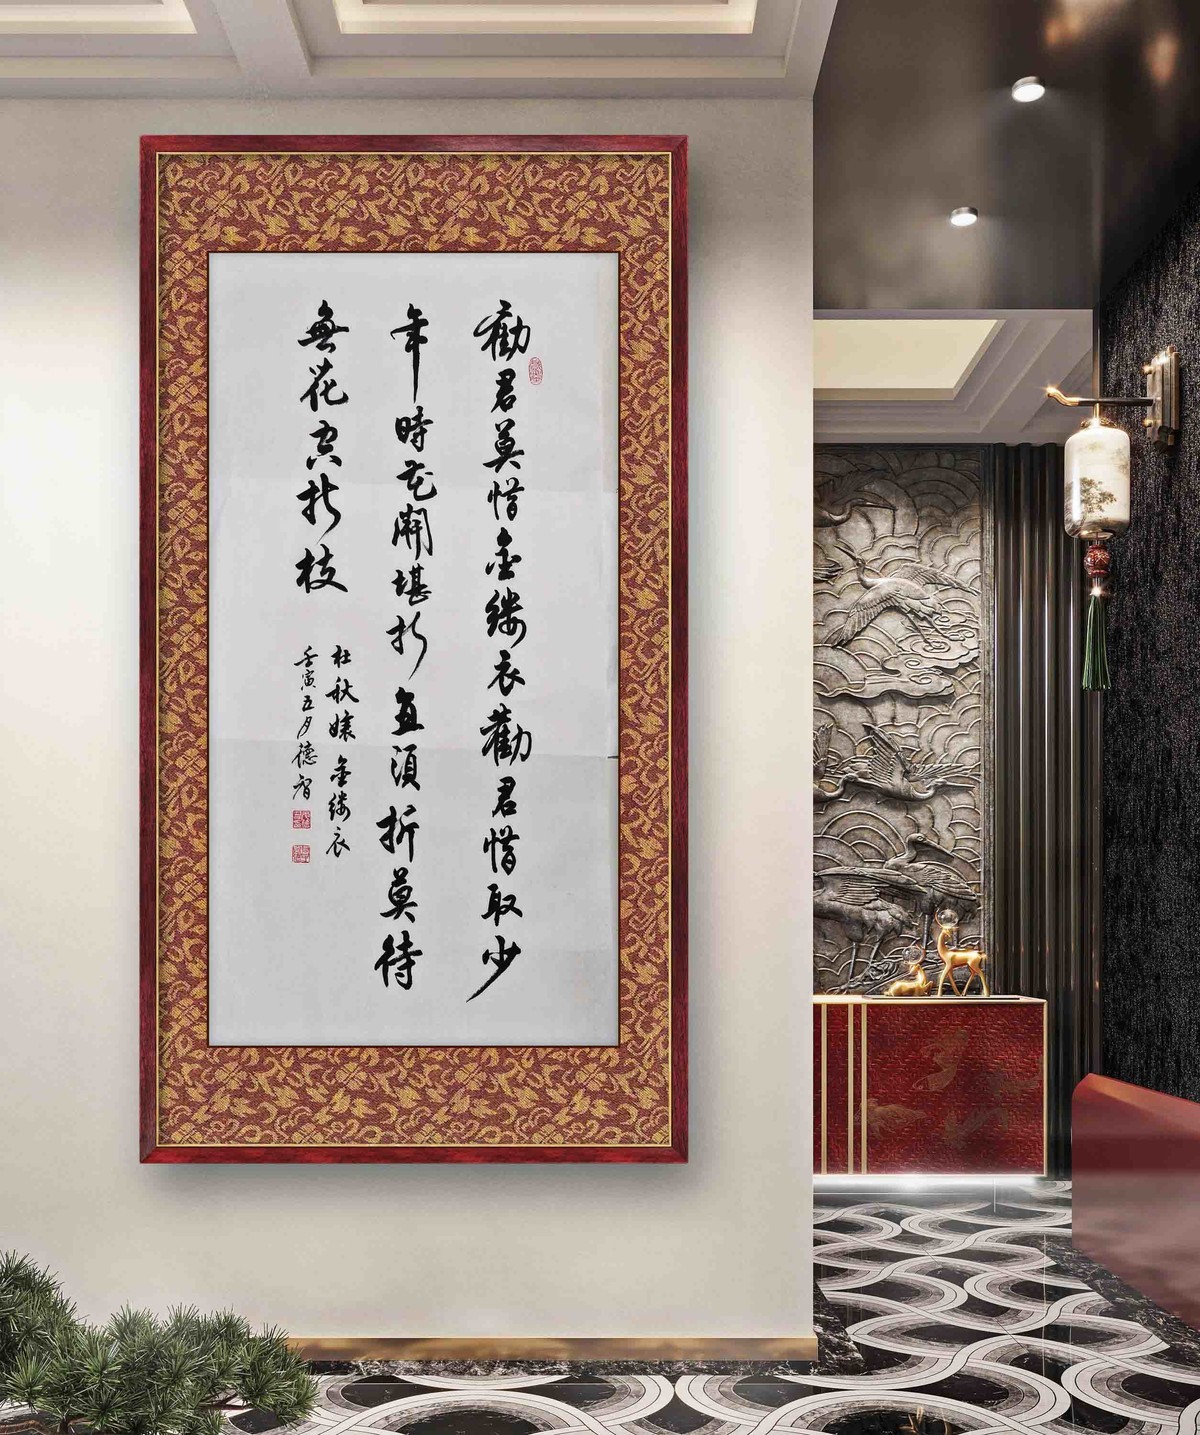 勸君莫惜金缕衣勸君惜取少
年時花開堪折直須折莫待
無花空折枝
杜秋孃金缕衣
壬寅五月德智